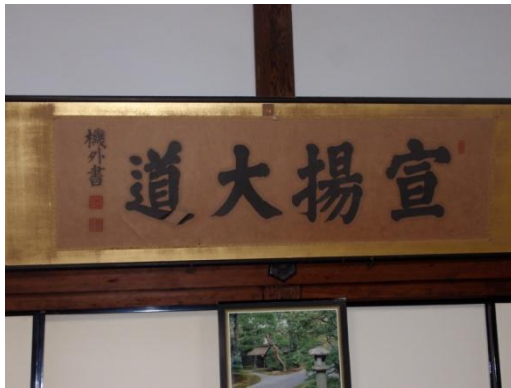 宣揚大道
機外書